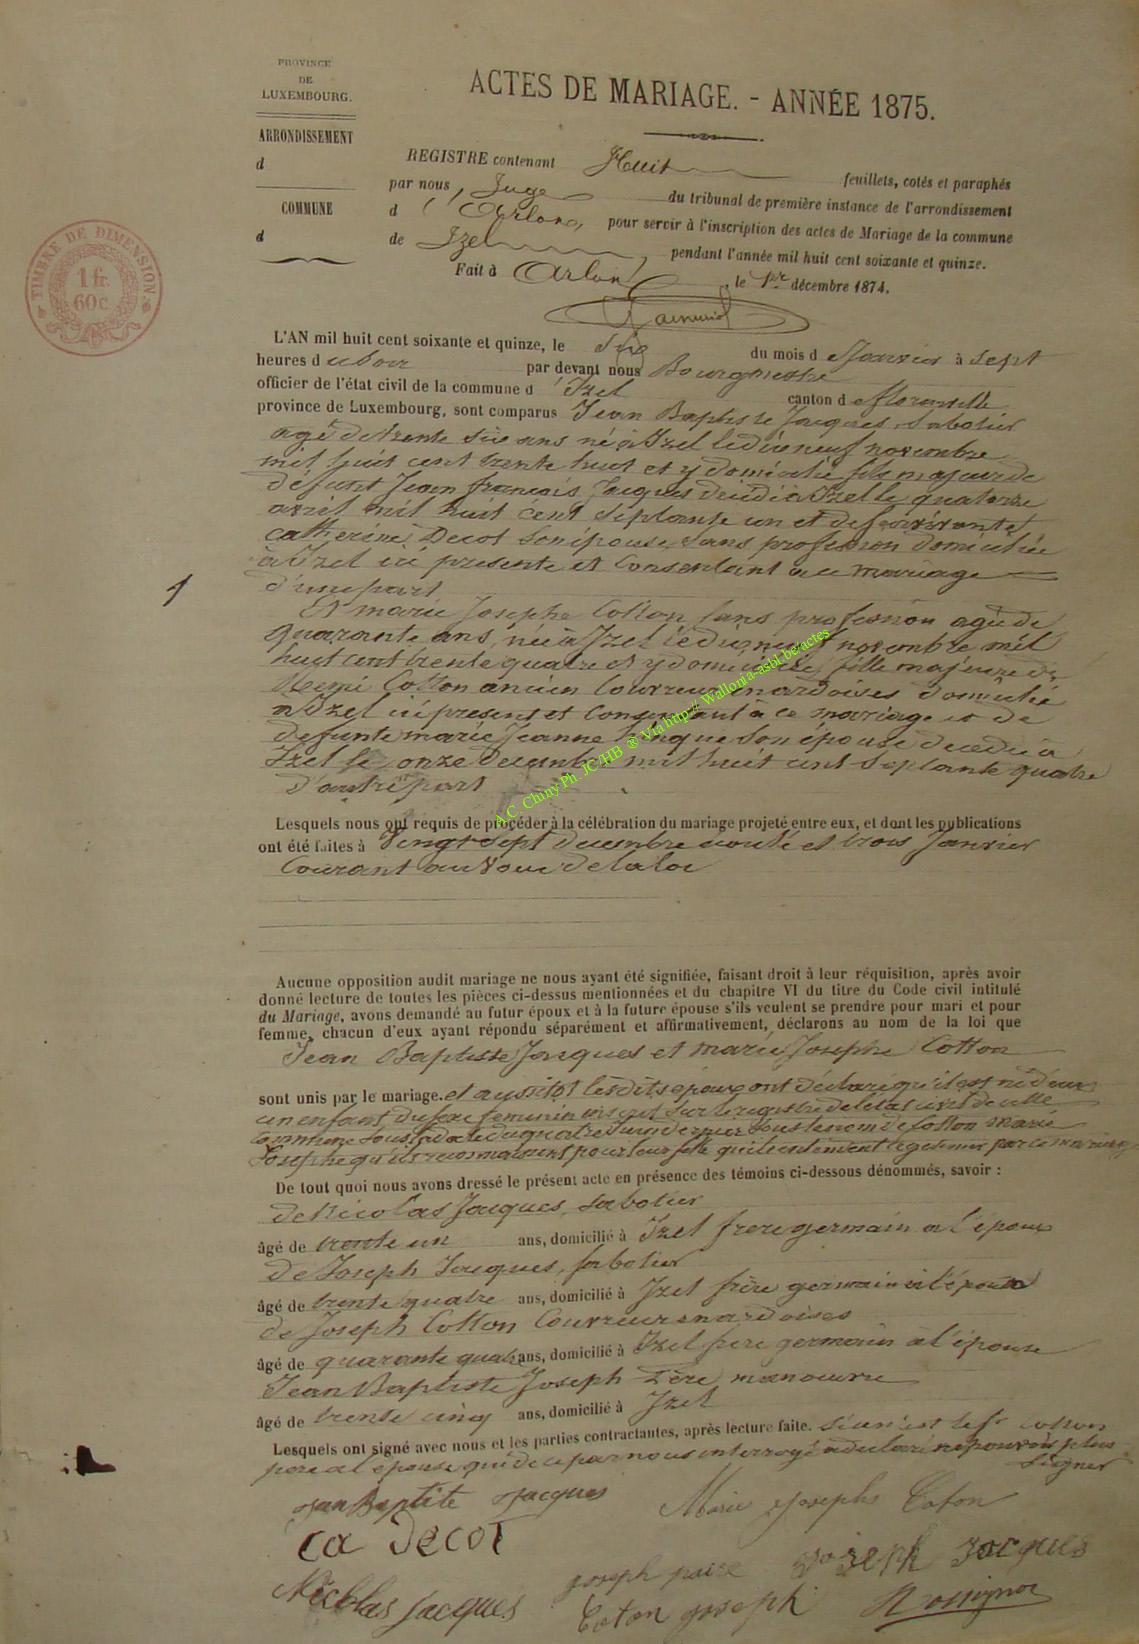 PROVINCE
DE
LUXEMBOURG.
ARRONDISSEMENT
d
COMMUNE
d
TIMBRE DE DIMENSION
1 fr.
60c.
ACTES DE MARIAGE. - ANNÉE 1875.
REGISTRE contenant Huit feuillets, cotés et paraphés
par nous, Juge du tribunal de première instance de l'arrondissement
d'Arlon, pour servir à l'inscription des actes de Mariage de la commune
de Izel, pendant l'année mil huit cent soixante et quinze.
Fait à Arlon, le 1er décembre 1874.
L'AN mil huit cent soixante et quinze, le du mois d Janvier à sept
heures du soir par devant nous Bourgmestre
officier de l'état civil de la commune d'Izel canton de florenville
province de Luxembourg, sont comparus Jean Baptiste Jacques, sabotier
agé de trente six ans né à Izel le dix neuf novembre
mil huit cent trente huit et y domicilié fils majeur de
défunt Jean françois Jacques décédé à Izel le quatorze
avril mil huit cent septante un et de survivante
catherine Decot son épouse, sans profession domiciliée
à Izel ici présente et consentant à ce mariage
d'une part
1
Et marie Josephe Cotton sans profession agée de
quarante ans, née à Izel le dix neuf novembre mil
huit cent trente quatre et y domiciliée, fille majeure de
Remi Cotton ancien couvreur en ardoises domicilié
à Izel ici présent et consentant à ce mariage et de
defunte marie Jeanne son épouse decedée à
Izel le onze decembre mil huit cent septante quatre
d'autre part
A.C. Chiny Ph. JC/HB ® Via http:// Wallonia-asbl.be/actes
Lesquels nous ont requis de procéder à la célébration du mariage projeté entre eux, et dont les publications
ont été faites à vingt sept decembre écoulé et trois Janvier
Courant au vœu de la loi
Aucune opposition audit mariage ne nous ayant été signifiée, faisant droit à leur réquisition, après avoir
donné lecture de toutes les pièces ci-dessus mentionnées et du chapitre VI du titre du Code civil intitulé
du Mariage, avons demandé au futur époux et à la future épouse s'ils veulent se prendre pour mari et pour
femme, chacun d'eux ayant répondu séparément et affirmativement, déclarons au nom de la loi que
Jean Baptiste Jacques et marie Josephe Cotton
sont unis par le mariage. et aussitot lesdits époux ont déclaré qu'il est né d'eux
un enfant du sexe feminin inscrit sur le registre de l'état civil de cette
commune sous la date du quatre Juin dernier sous le nom de Cotton marie
Josephe qu'ils reconnaissent pour leur fille qu'ils entendent légitimer par ce mariage
De tout quoi nous avons dressé le présent acte en présence des témoins ci-dessous dénommés, savoir :
de Nicolas Jacques, sabotier
âgé de trente un ans, domicilié à Izel frere germain a l'époux
de Joseph Jacques, sabotier
âgé de trente quatre ans, domicilié à Izel frère germain a l'époux
de Joseph Cotton Couvreur en ardoises
âgé de quarante quatre ans, domicilié à Izel frere germain a l'épouse
Jean Baptiste Joseph manoeuvre
âgé de trente cinq ans, domicilié à Izel
Lesquels ont signé avec nous et les parties contractantes, après lecture faite. Si ce n'est le sr cotton
pere a l'épouse qui de ce par nous interrogé a déclaré ne pouvoir plus
signer
Jean Baptite Jacques Marie Josephe Coton
Ca Decot
joseph Joseph Jacques
Nicolas Jacques Coton joseph Rossignon